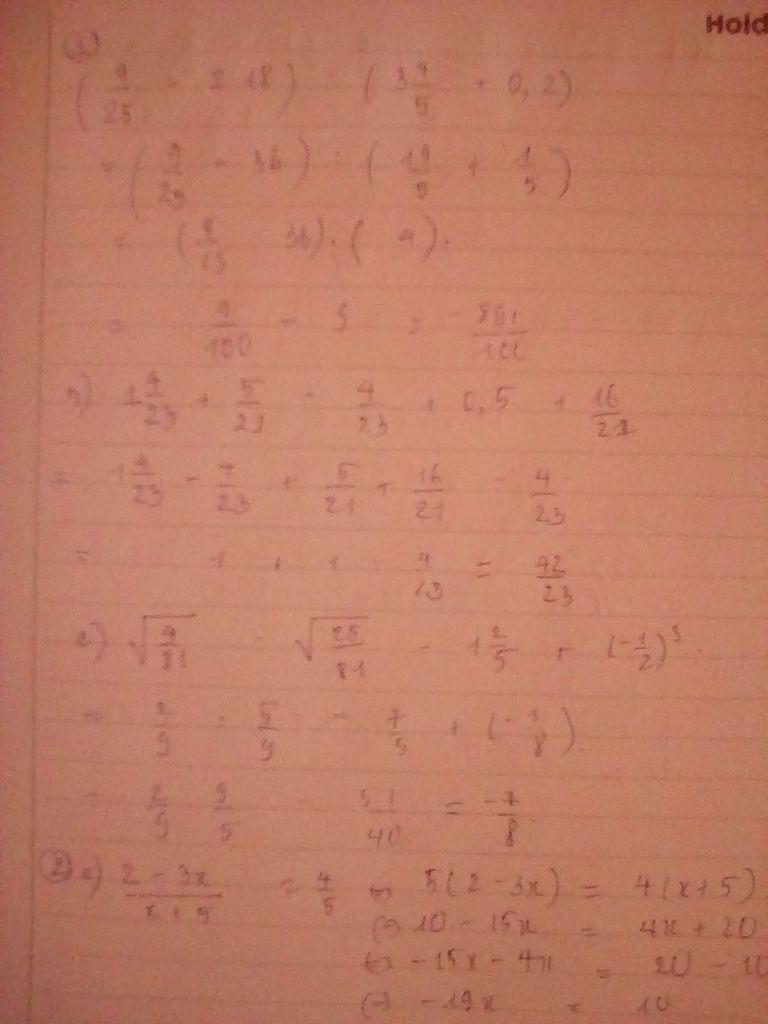 Hold
1)
( 9/25 - 2.18) : ( 3 4/5 + 0,2)
= ( 9/25 - 36) : ( 19/5 + 1/5 )
= ( 9/25 36) : ( 4).
= 9/100 - 9 = - 891/100
1 4/23 + 5/21 - 4/23 + 0,5 + 16/21
= 1 4/23 - 4/23 + 5/21 + 16/21 - 4/23
= 1 + 1 4/23 = 42/23
c) √4/81 : √25/81 - 1 2/5 + (-1/2)³.
= 2/9 : 5/9 - 7/5 + (- 1/8).
= 2/9 9/5 - 51/40 = -7/8.
2 a) 2 - 3x / x + 5 = 4/5 ⇔ 5(2 - 3x) = 4(x+5)
⇔ 10 - 15x = 4x + 20
⇔ - 15x - 4x = 20 - 10
⇔ - 19x = 10